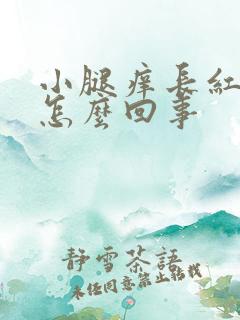 小腿痒长红
怎麼回事
静雪茶語
未经同意禁止转载